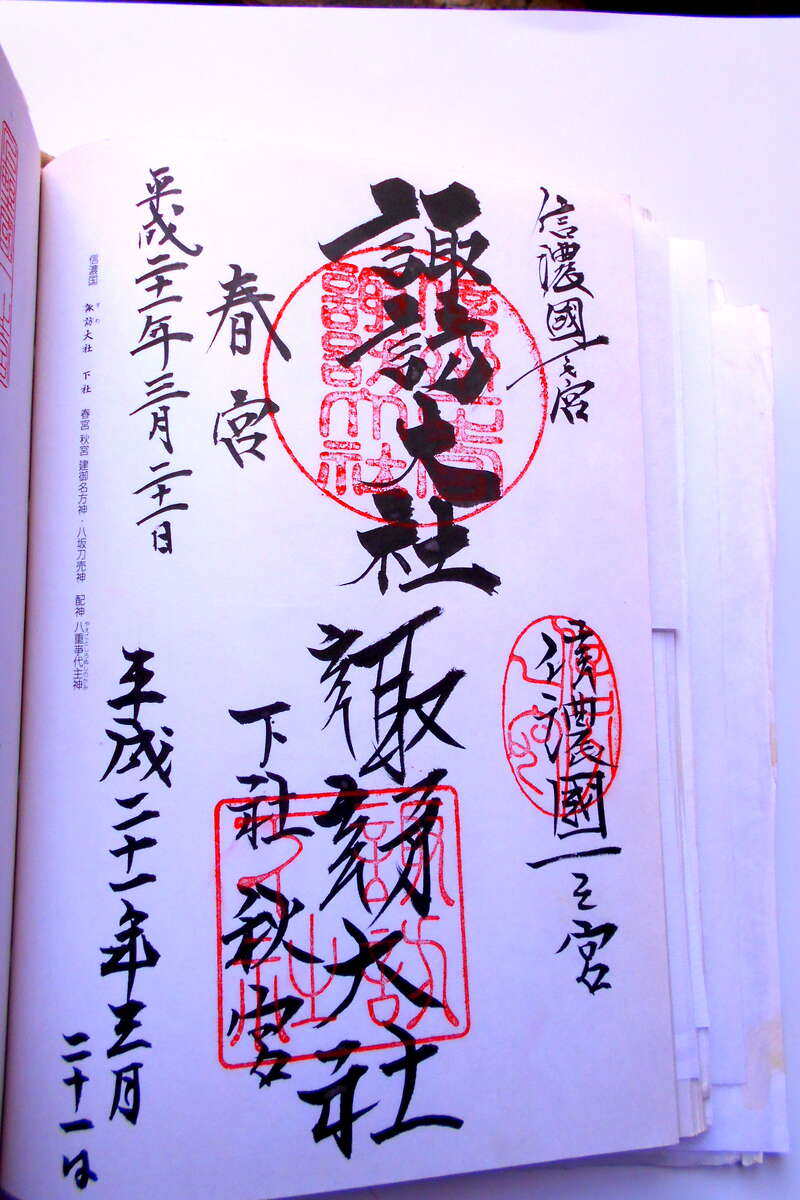 信濃國一之宮
諏訪大社
春宮
平成二十一年三月二十一日
信濃國一之宮
諏訪大社
下社秋宮
平成二十一年三月
二十一日
信濃国 諏訪大社 下社 春宮 秋宮 建御名方神・八坂刀売神 配神 八重事代主神
すわ
やえことしろぬしのかみ
諏訪大社